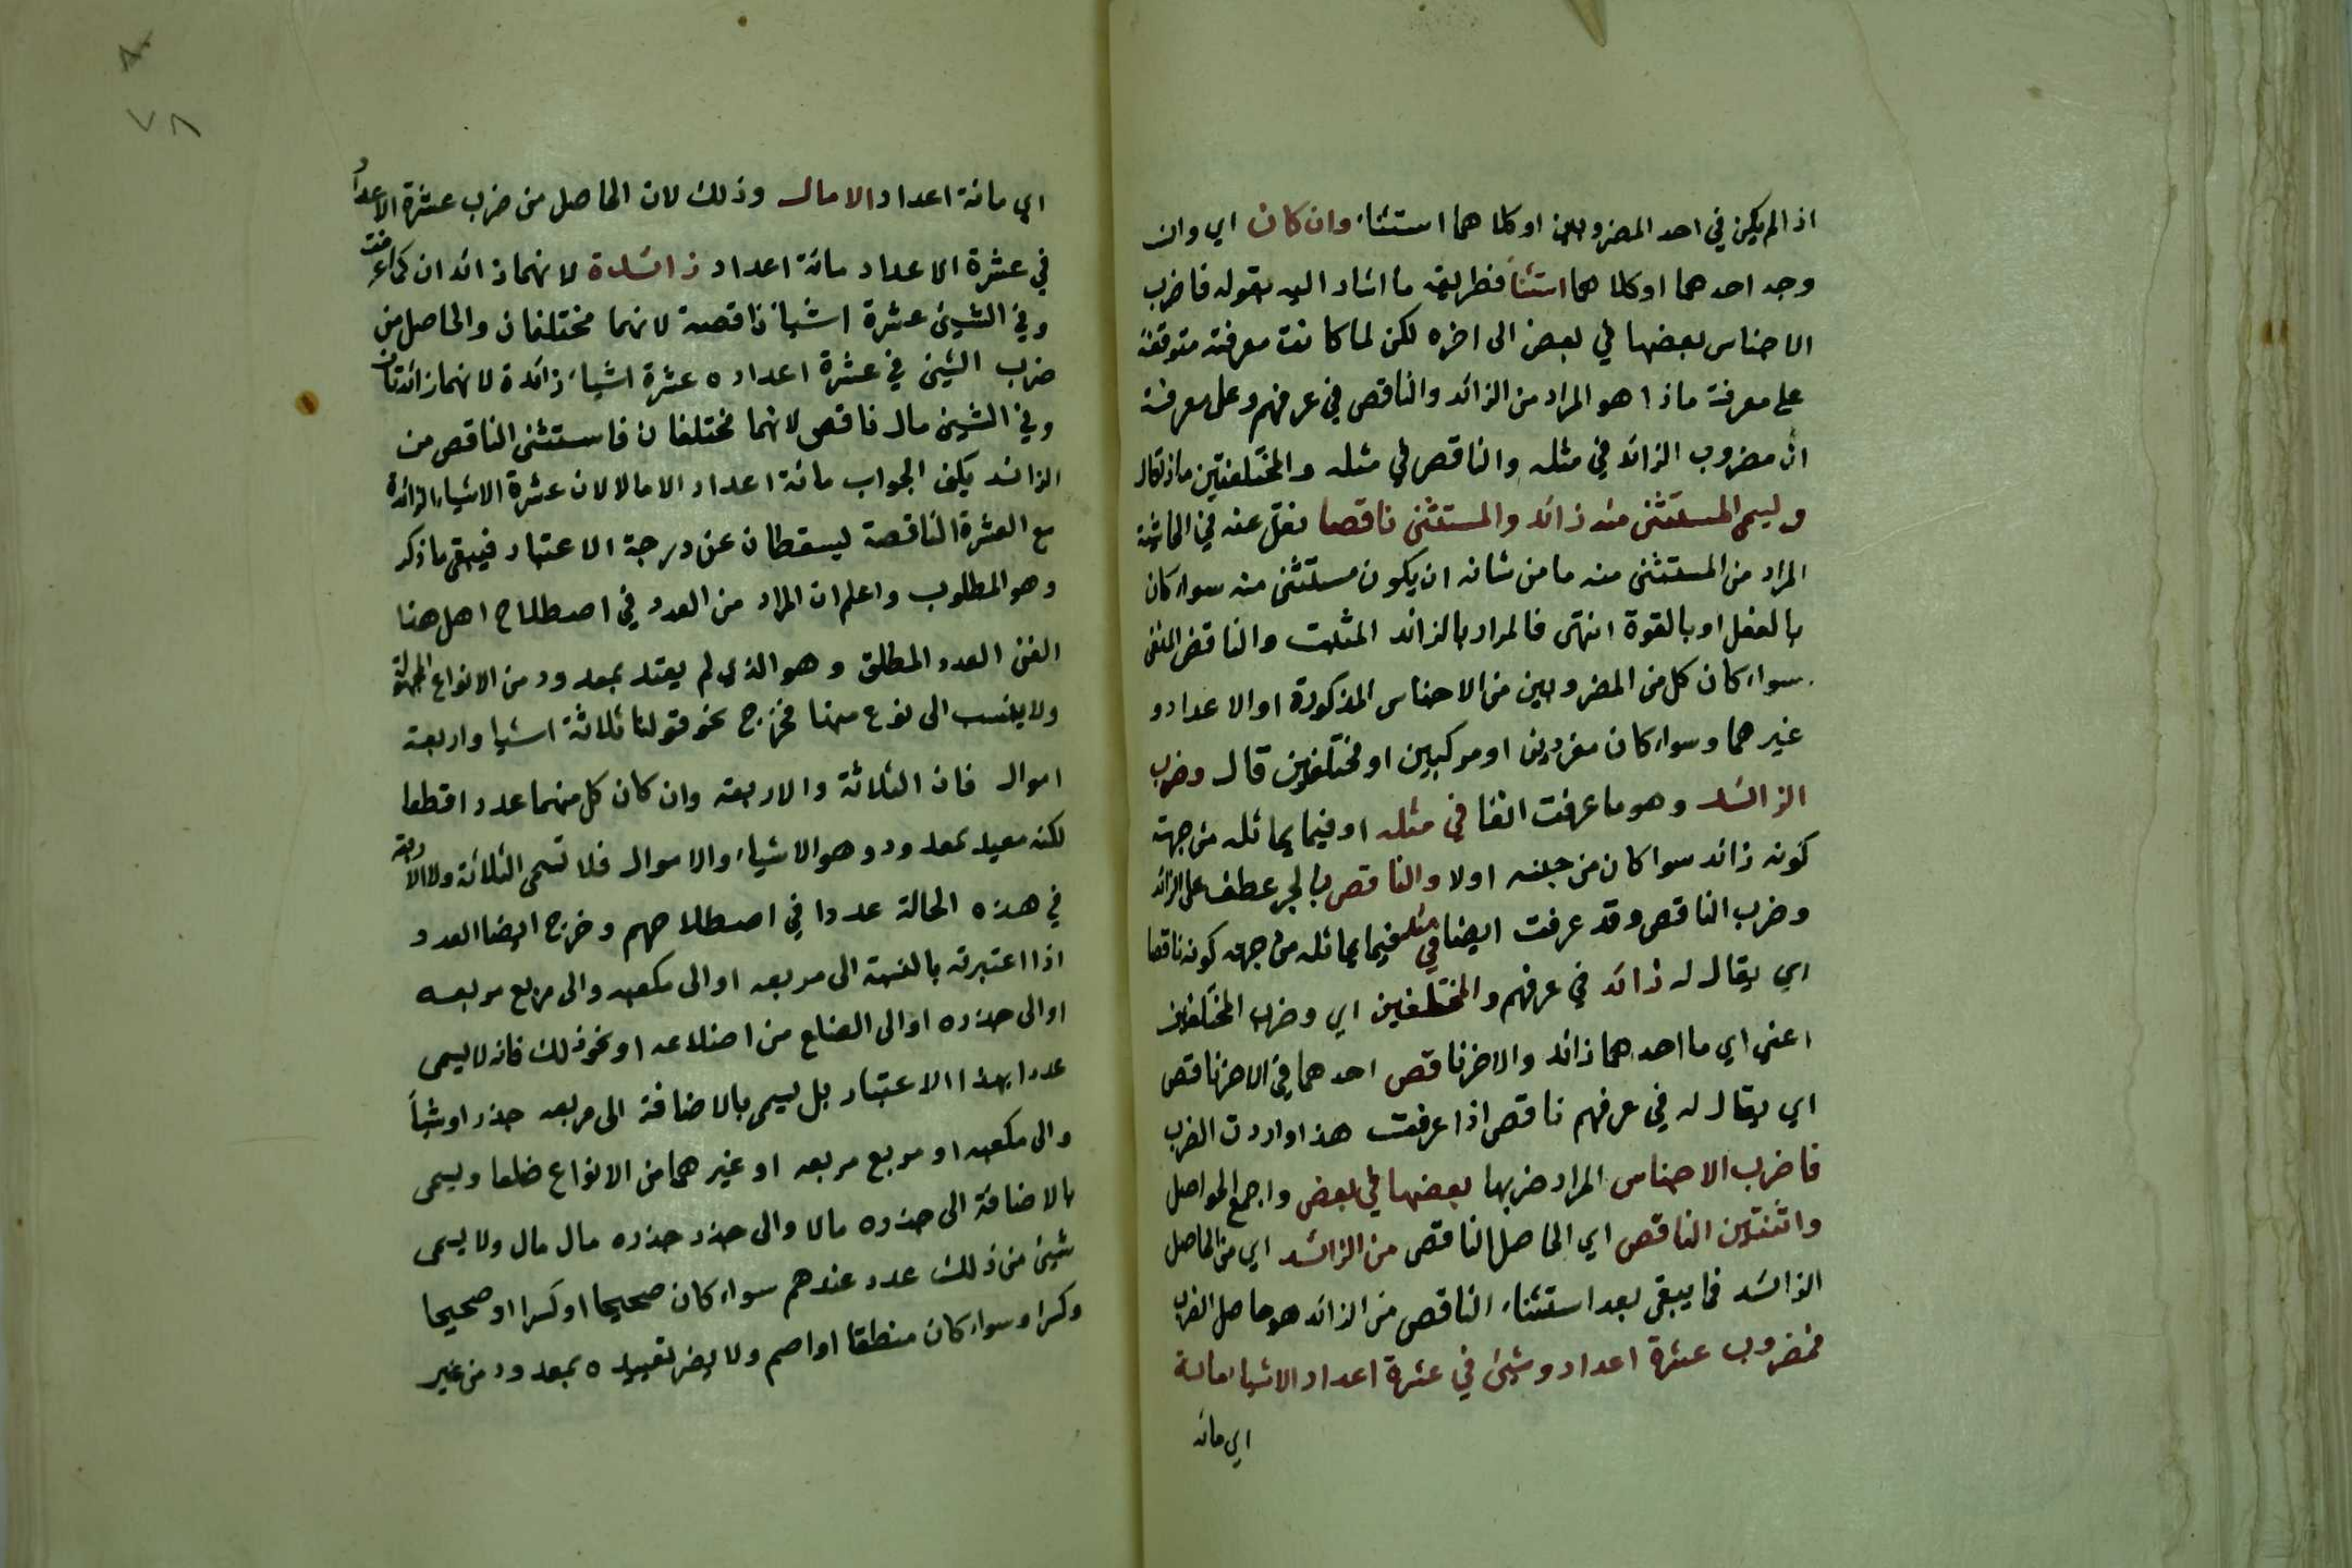 اذا لم يكن في احد المضروبين او كلاهما استثناء وان كان اي وان
وجد احدهما او كلاهما استثنا فطريقه ما اشار اليه بقوله فاضرب
الاجناس بعضها في بعض الى اخره لكن لما كانت معرفته متوقفة
على معرفة ماذا هو المراد من الزائد والناقص في عرفهم وعلى معرفة
ان مضروب الزائد في مثله والناقص في مثله والمختلفتين ماذا قال
ويسمى المستثنى منه زائد والمستثنى ناقصا نقل عنه في الحاشية
المراد من المستثنى منه ما من شانه ان يكون مستثنى منه سواء كان
بالفعل او بالقوة انتهى فالمراد بالزائد المثبت والناقص المنفى
سواء كان كل من المضروبين من الاجناس المذكورة او الاعداد و
غيرهما وسواء كان مفردين او مركبين او مختلفين قال وضرب
الزائد وهو ما عرفت انفا في مثله او فيما يماثله من جهة
كونه زائد سوا كان من جنسه اولا والناقص بالجر عطف على الزائد
وضرب الناقص وقد عرفت ايضا في مثله فيما يماثله من جهة كونه ناقصا
اي يقال له زائد في عرفهم والمختلفين اي وضرب المختلفين
اعني اي ما احدهما زائد والاخر ناقص احدهما في الاخر ناقص
اي يقال له في عرفهم ناقص اذا عرفت هذا واردت الضرب
فاضرب الاجناس المراد ضربها بعضها في بعض واجمع الحواصل
الناقص اي الحاصل الناقص من الزائد اي من الحاصل
الزائد فما يبقى بعد استثناء الناقص من الزائد هو حاصل الضرب
فمضروب عشرة اعداد وشيئ في عشرة اعداد الا شيا مائة
اي مائة
٧٨
اي مائة اعداد الا مال وذلك لان الحاصل من ضرب عشرة الاعداد
في عشرة الاعداد مائة اعداد زائدة لانهما زائدان كما عرفت
وفي الشيئ عشرة اشياء ناقصة لانهما مختلفان والحاصل من
ضرب الشيئ في عشرة اعداده عشرة اشياء زائدة لانهما زائدتان
وفي الشيئ مال ناقص لانهما مختلفان فاستثنى الناقص من
الزائد يكن الجواب مائة اعداد الا مالا لان عشرة الاشياء الزائدة
مع العشرة الناقصة يسقطان عن درجة الاعتبار فيبقى ما ذكر
وهو المطلوب واعلم ان المراد من العدد في اصطلاح اهل هنا
الفن العدد المطلق وهو الذي لم يقيد بمعدود من الانواع المجهولة
ولا ينسب الى نوع منها فخرج نحو قولنا ثلاثة اشيا واربعة
اموال فان الثلاثة والاربعة وان كان كل منهما عددا قطعا
لكنه مقيد بمعدود وهو الاشياء والاموال فلا تسمى الثلاثة ولا الاربعة
في هذه الحالة عددا في اصطلاحهم وخرج ايضا العدد
اذا اعتبرته بالنسبة الى مربعه او الى مكعبه والى مربع مربعه
او الى جذره او الى الضلع من اضلاعه او نحو ذلك فانه لا يسمى
عددا بهذا الاعتبار بل يسمى بالاضافة الى مربعه جذر او شيأ
والى مكعبه او مربع مربعه او غيرهما من الانواع ضلعا ويسمى
بالاضافة الى جذره مالا والى جذر جذره مال مال ولا يسمى
شيئ من ذلك عدد عندهم سواء كان صحيحا او كسرا او صحيحا
وكسرا وسواء كان منطقا او اصم ولا يضر تقييده بمعدود من غير